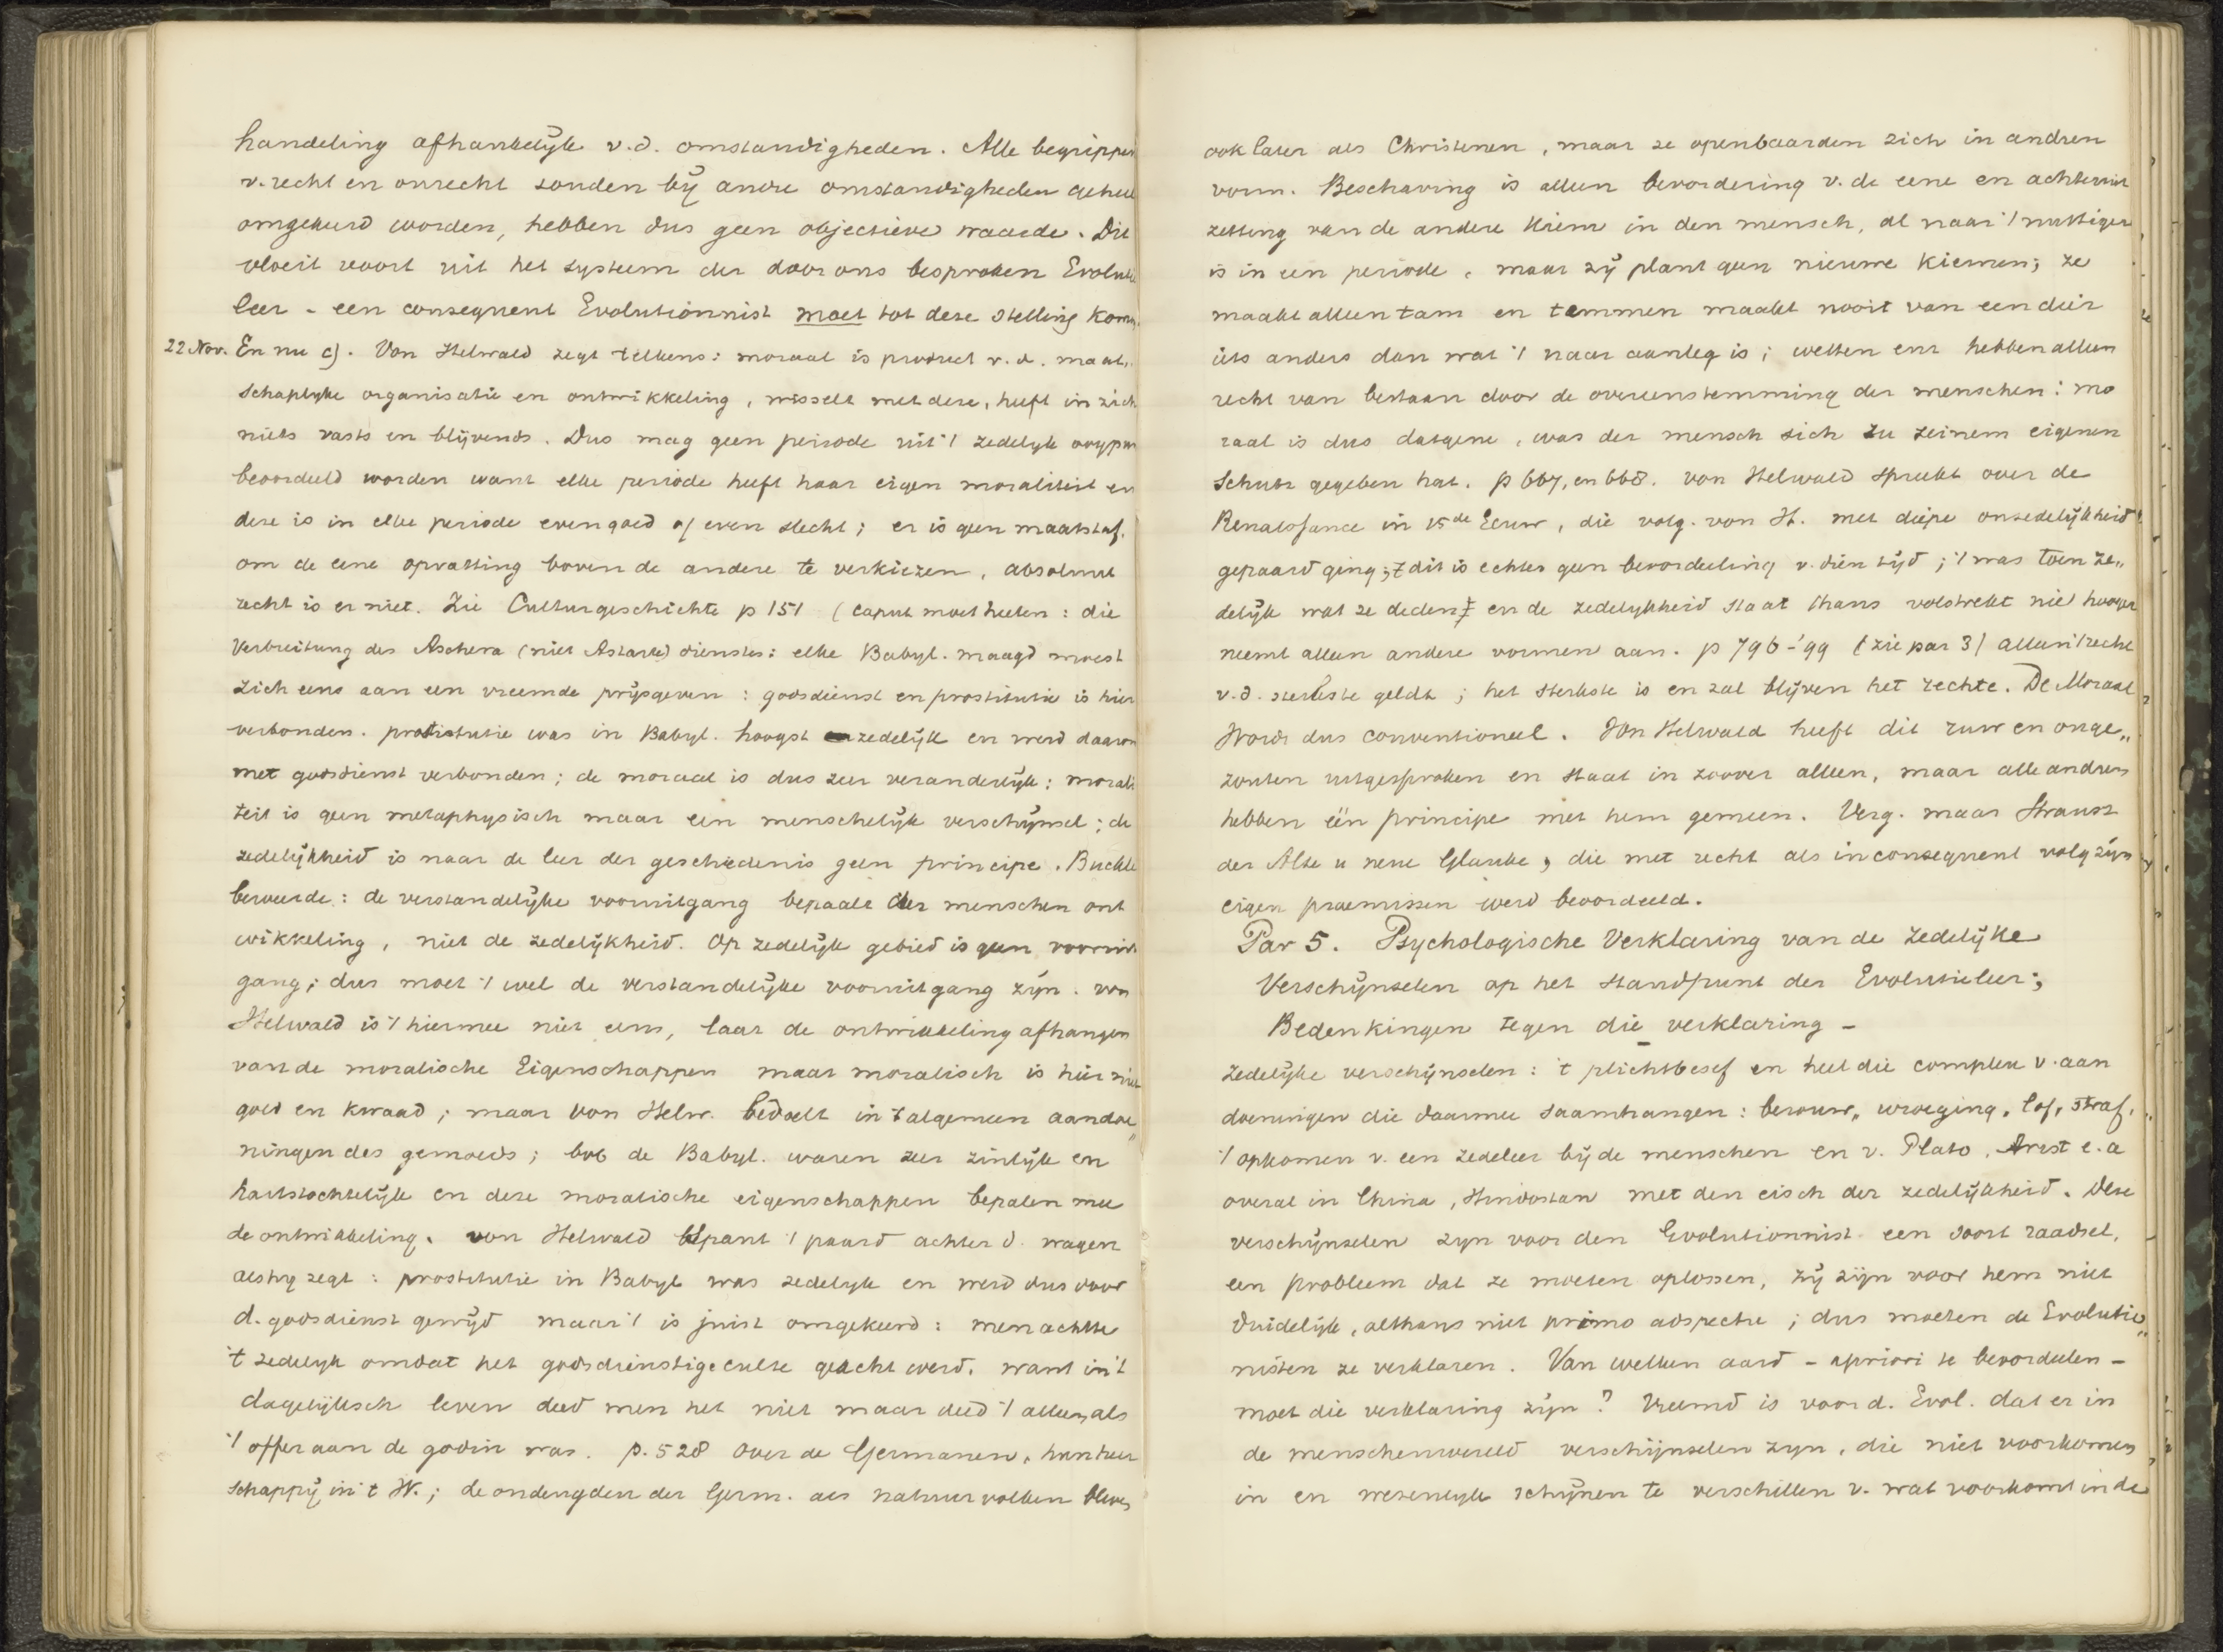 handeling afhankelijk v.d. omstandigheden. Alle begrippen
v. recht en onrecht zouden bij andre omstandigheden geheel
omgekeerd worden, hebben dus geen objectieve waarde. Dit
vloeit voort uit het systeem der door ons besproken Evolutie
leer - een consequent Evolutionnist moet tot deze stelling komen.
22 Nov. En nu c). Von Helwald zegt telkens: moraal is product v.d. maat„
schaplyke organisatie en ontwikkeling, wisselt met deze, heeft in zich
niets vasts en blijvends. Dus mag geen periode uit 't zedelyk oogpunt
beoordeeld worden want elke periode heeft haar eigen moraliteit en
deze is in elke periode evengoed of even slecht; er is geen maatstaf
om de eene opvatting boven de andere te verkiezen, absoluut
recht is er niet. Zie Culturgeschichte p 151 (caput moet heeten: die
Verbreitung des Aschera (niet Astarte) dienstes: elke Babyl. maagd moest
zich eens aan een vreemde prijsgeven: godsdienst en prostitutie is hier
verbonden. prostitutie was in Babyl. hoogst zedelijk en werd daarom
met godsdienst verbonden; de moraal is dus zeer veranderlijk: morali
teit is geen metaphysisch maar een menschelijk verschijnsel; de
zedelijkheid is naar de leer der geschiedenis geen principe. Buckle
beweerde: de verstandelijke vooruitgang bepaalt der menschen ont
wikkeling, niet de zedelijkheid. Op zedelijk gebied is geen vooruit
gang; dus moet 't wel de verstandelijke vooruitgang zijn. von
Helwald is 't hiermee niet eens, laat de ontwikkeling afhangen
van de moralische Eigenschappen maar moralisch is hier niet
goed en kwaad; maar von Helw. bedoelt in 't algemeen aandoe„
ningen des gemoeds; bvb de Babyl. waren zeer zinlijk en
hartstochtelijk en deze moralische eigenschappen bepalen mee
de ontwikkeling. von Helwald spant 't paard achter d. wagen
als hij zegt: prostitutie in Babyl was zedelyk en werd dus door
d. godsdienst gewijd maar 't is juist omgekeerd: men achtte
't zedelyk omdat het godsdienstige culte geacht werd. want in 't
dagelijksch leven deed men het niet maar deed 't alleen als
't offer aan de godin was. p. 528 over de Germanen, hun heer
schappij in 't W.; de ondeugden der Germ. als natuurvolken bleven
ook later als Christenen, maar ze openbaarden zich in andren
vorm. Beschaving is alleen bevordering v. de eene en achteruit
zetting van de andere kiem in den mensch, al naar 't nuttiger
is in een periode, maar zij plant geen nieuwe kiemen; ze
maakt alleen tam en temmen maakt nooit van een dier
iets anders dan wat 't naar aanleg is; wetten enz hebben alleen
recht van bestaan door de overeenstemming der menschen: mo
raal is dus datgene, was der mensch sich zu seinem eigenen
Schutz gegeben hat. p 667, en 668. von Helwald spreekt over de
Renaissance in 15de Eeuw, die volg. von H. met diepe onzedelijkheid
gepaard ging; dit is echter geen beoordeeling v. dien tijd; 't was toen ze„
delijk wat ze deden en de zedelykheid staat thans volstrekt niet hooger
neemt alleen andere vormen aan. p 796-'99 (zie par 3) alleen 't recht
v.d. sterkste geldt; het sterkste is en zal blijven het rechte. De Moraal
wordt dus conventioneel. Von Helwald heeft dit ruw en onge„
zouten uitgesproken en staat in zoover alleen, maar alle andren
hebben één principe met hem gemeen. Verg. maar Strauss
der Alte u neue Glaube, die met recht als inconsequent volg zijn
eigen praemissen werd beoordeeld.
Par 5. Psychologische Verklaring van de zedelijke
Verschijnselen op het standpunt der Evolutieleer;
Bedenkingen tegen die verklaring -
zedelijke verschijnselen: 't plichtbesef en heel die complex v. aan
doeningen die daarmee saamhangen: berouw„ wroeging, lof, straf,
't opkomen v. een zedeleer bij de menschen en v. Plato, Arist e.a
overal in China, Hindostan met den eisch der zedelijkheid. Deze
verschijnselen zyn voor den Evolutionnist een soort raadsel,
een probleem dat ze moeten oplossen, zij zijn voor hem niet
duidelijk, althans niet primo adspectu; dus moeten de Evolutio„
nisten ze verklaren. Van welken aard - apriori te beoordeelen -
moet die verklaring zijn? Vreemd is voor d. Evol. dat er in
de menschenwereld verschijnselen zyn, die niet voorkomen
in en wezenlyk schijnen te verschillen v. wat voorkomt in de